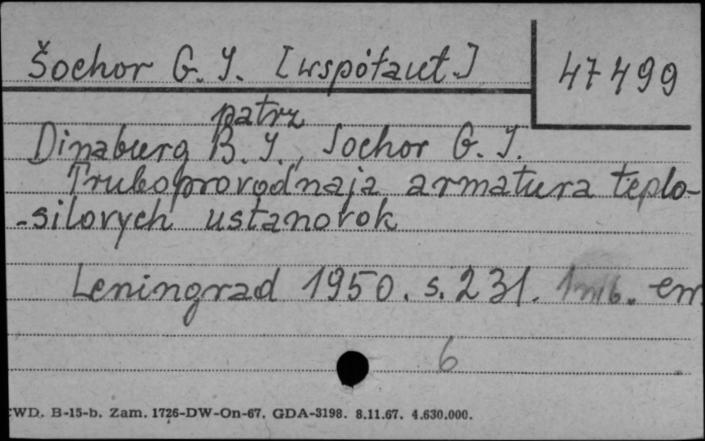 Šochor G. I. [współaut.]
47499
patrz
Dinaburg B. I., Šochor G. I.
Truboprovodnaja armatura teplo-
-silovych ustanovok
Leningrad 1950. s. 231. em
6
WD. B-15-b. Zam. 1726-DW-On-67. GDA-3198. 8.11.67. 4.630.000.